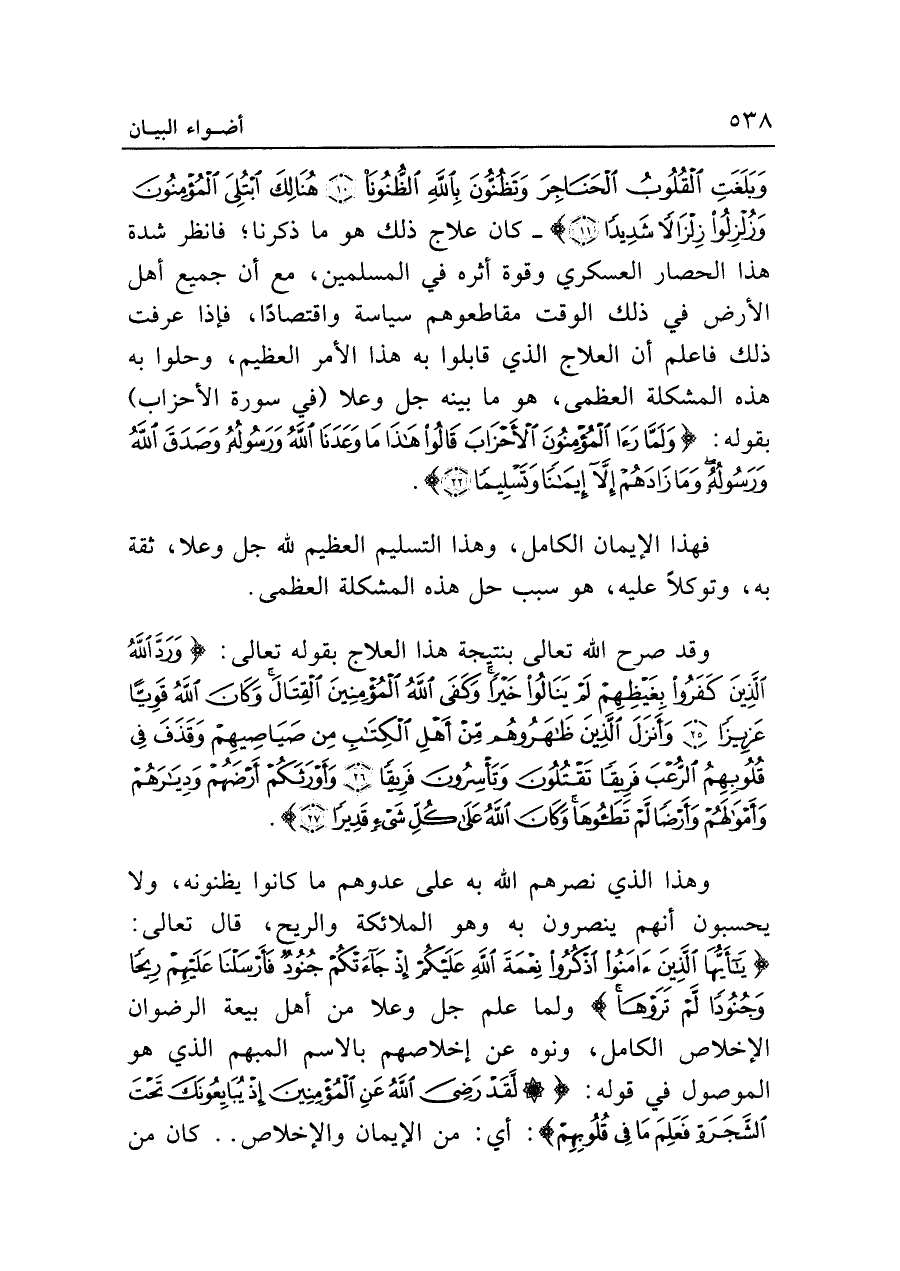 ٥٣٨ أضـواء البيـان
وَبَلَغَتِ ٱلْقُلُوبُ ٱلْحَنَاجِرَ وَتَظُنُّونَ بِٱللَّهِ ٱلظُّنُونَا۠ ﴿١٠﴾ هُنَالِكَ ٱبْتُلِىَ ٱلْمُؤْمِنُونَ
وَزُلْزِلُوا۟ زِلْزَالًا شَدِيدًا ﴿١١﴾﴾ ـ كان علاج ذلك هو ما ذكرنا؛ فانظر شدة
هذا الحصار العسكري وقوة أثره في المسلمين، مع أن جميع أهل
الأرض في ذلك الوقت مقاطعوهم سياسة واقتصادًا، فإذا عرفت
ذلك فاعلم أن العلاج الذي قابلوا به هذا الأمر العظيم، وحلوا به
هذه المشكلة العظمى، هو ما بينه جل وعلا (في سورة الأحزاب)
بقوله: ﴿وَلَمَّا رَءَا ٱلْمُؤْمِنُونَ ٱلْأَحْزَابَ قَالُوا۟ هَـٰذَا مَا وَعَدَنَا ٱللَّهُ وَرَسُولُهُۥ وَصَدَقَ ٱللَّهُ
وَرَسُولُهُۥ ۚ وَمَا زَادَهُمْ إِلَّآ إِيمَـٰنًا وَتَسْلِيمًا ﴿٢٢﴾﴾.
فهذا الإيمان الكامل، وهذا التسليم العظيم لله جل وعلا، ثقة
به، وتوكلاً عليه، هو سبب حل هذه المشكلة العظمى.
وقد صرح الله تعالى بنتيجة هذا العلاج بقوله تعالى: ﴿وَرَدَّ ٱللَّهُ
ٱلَّذِينَ كَفَرُوا۟ بِغَيْظِهِمْ لَمْ يَنَالُوا۟ خَيْرًا ۚ وَكَفَى ٱللَّهُ ٱلْمُؤْمِنِينَ ٱلْقِتَالَ ۚ وَكَانَ ٱللَّهُ قَوِيًّا
عَزِيزًا ﴿٢٥﴾ وَأَنزَلَ ٱلَّذِينَ ظَـٰهَرُوهُم مِّنْ أَهْلِ ٱلْكِتَـٰبِ مِن صَيَاصِيهِمْ وَقَذَفَ فِى
قُلُوبِهِمُ ٱلرُّعْبَ فَرِيقًا تَقْتُلُونَ وَتَأْسِرُونَ فَرِيقًا ﴿٢٦﴾ وَأَوْرَثَكُمْ أَرْضَهُمْ وَدِيَـٰرَهُمْ
وَأَمْوَٰلَهُمْ وَأَرْضًا لَّمْ تَطَـُٔوهَا ۚ وَكَانَ ٱللَّهُ عَلَىٰ كُلِّ شَىْءٍ قَدِيرًا ﴿٢٧﴾﴾.
وهذا الذي نصرهم الله به على عدوهم ما كانوا يظنونه، ولا
يحسبون أنهم ينصرون به وهو الملائكة والريح، قال تعالى:
﴿يَـٰٓأَيُّهَا ٱلَّذِينَ ءَامَنُوا۟ ٱذْكُرُوا۟ نِعْمَةَ ٱللَّهِ عَلَيْكُمْ إِذْ جَآءَتْكُمْ جُنُودٌ فَأَرْسَلْنَا عَلَيْهِمْ رِيحًا
وَجُنُودًا لَّمْ تَرَوْهَا ۚ﴾ ولما علم جل وعلا من أهل بيعة الرضوان
الإخلاص الكامل، ونوه عن إخلاصهم بالاسم المبهم الذي هو
الموصول في قوله: ﴿۞ لَّقَدْ رَضِىَ ٱللَّهُ عَنِ ٱلْمُؤْمِنِينَ إِذْ يُبَايِعُونَكَ تَحْتَ
ٱلشَّجَرَةِ فَعَلِمَ مَا فِى قُلُوبِهِمْ﴾: أي: من الإيمان والإخلاص.. كان من